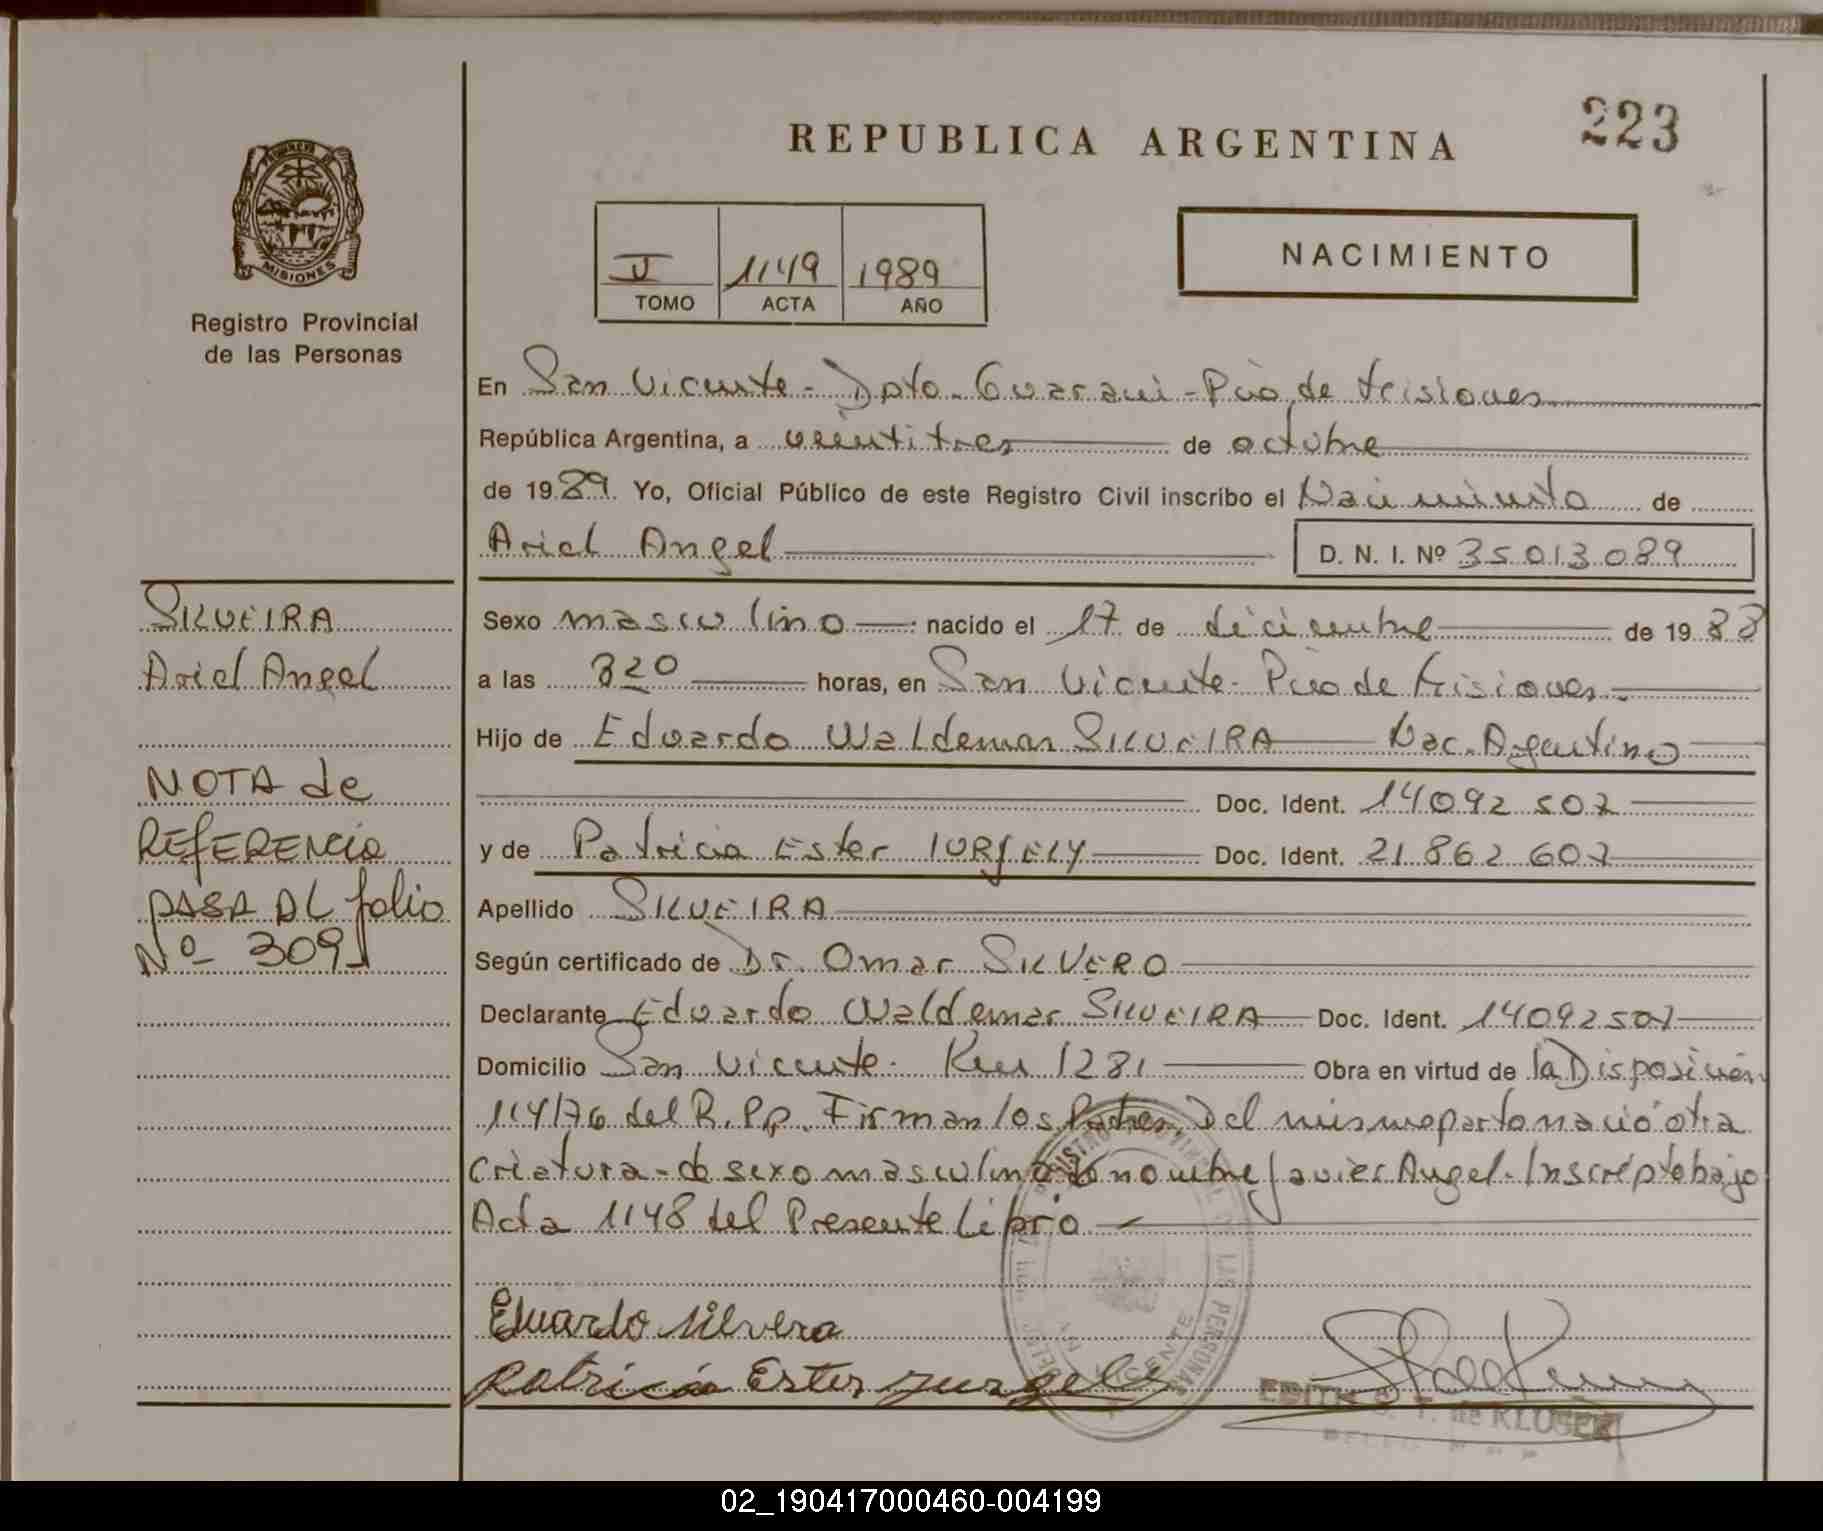 223
REPUBLICA ARGENTINA
PROVINCIA DE
MISIONES
Registro Provincial
de las Personas
NACIMIENTO
V 1149 1989
TOMO ACTA AÑO
En San Vicente - Dpto. Guaraní - Pcia de Misiones
República Argentina, a veintitres de octubre
de 1989. Yo, Oficial Público de este Registro Civil inscribo el Nacimiento de
Ariel Angel D. N. I. Nº 35013089
SILVEIRA
Ariel Angel
NOTA de
REFERENCIA
PASA AL folio
Nº 309
Sexo masculino nacido el 17 de diciembre de 1988
a las 820 horas, en San Vicente - Pcia de Misiones.
Hijo de Eduardo Waldemar SILVEIRA Nac. Argentino
Doc. Ident. 14092507
y de Patricia Ester IURGELY Doc. Ident. 21862607
Apellido SILVEIRA
Según certificado de Dr. Omar SILVERO
Declarante Eduardo Waldemar SILVEIRA Doc. Ident. 14092507
Domicilio San Vicente - Km 1281 Obra en virtud de la Disposición
114/76 del R.P.P. Firman los Padres. Del mismo parto nació otra
criatura - de sexo masculino de nombre Javier Angel - Inscripto bajo
Acta 1148 del Presente Libro
Eduardo Silvera
Patricia Ester
EDITH S. T. de KLUSEK
02_190417000460-004199